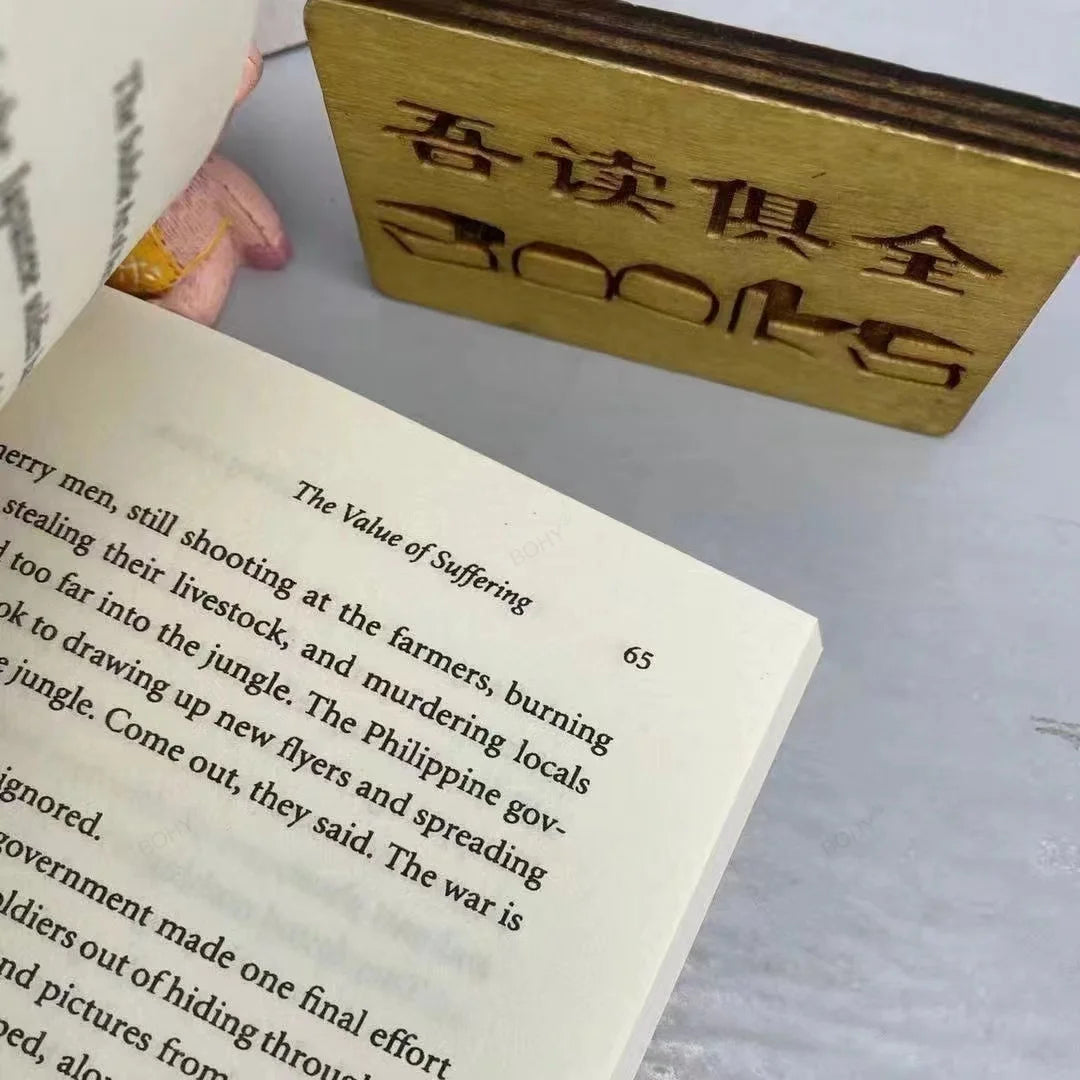 吾读俱全
Books
The Value of Suffering
65
merry men, still shooting at the farmers, burning
stealing their livestock, and murdering locals
too far into the jungle. The Philippine gov-
to drawing up new flyers and spreading
jungle. Come out, they said. The war is
ignored.
government made one final effort
soldiers out of hiding through
and pictures from
BOHY
BOHY
BOHY